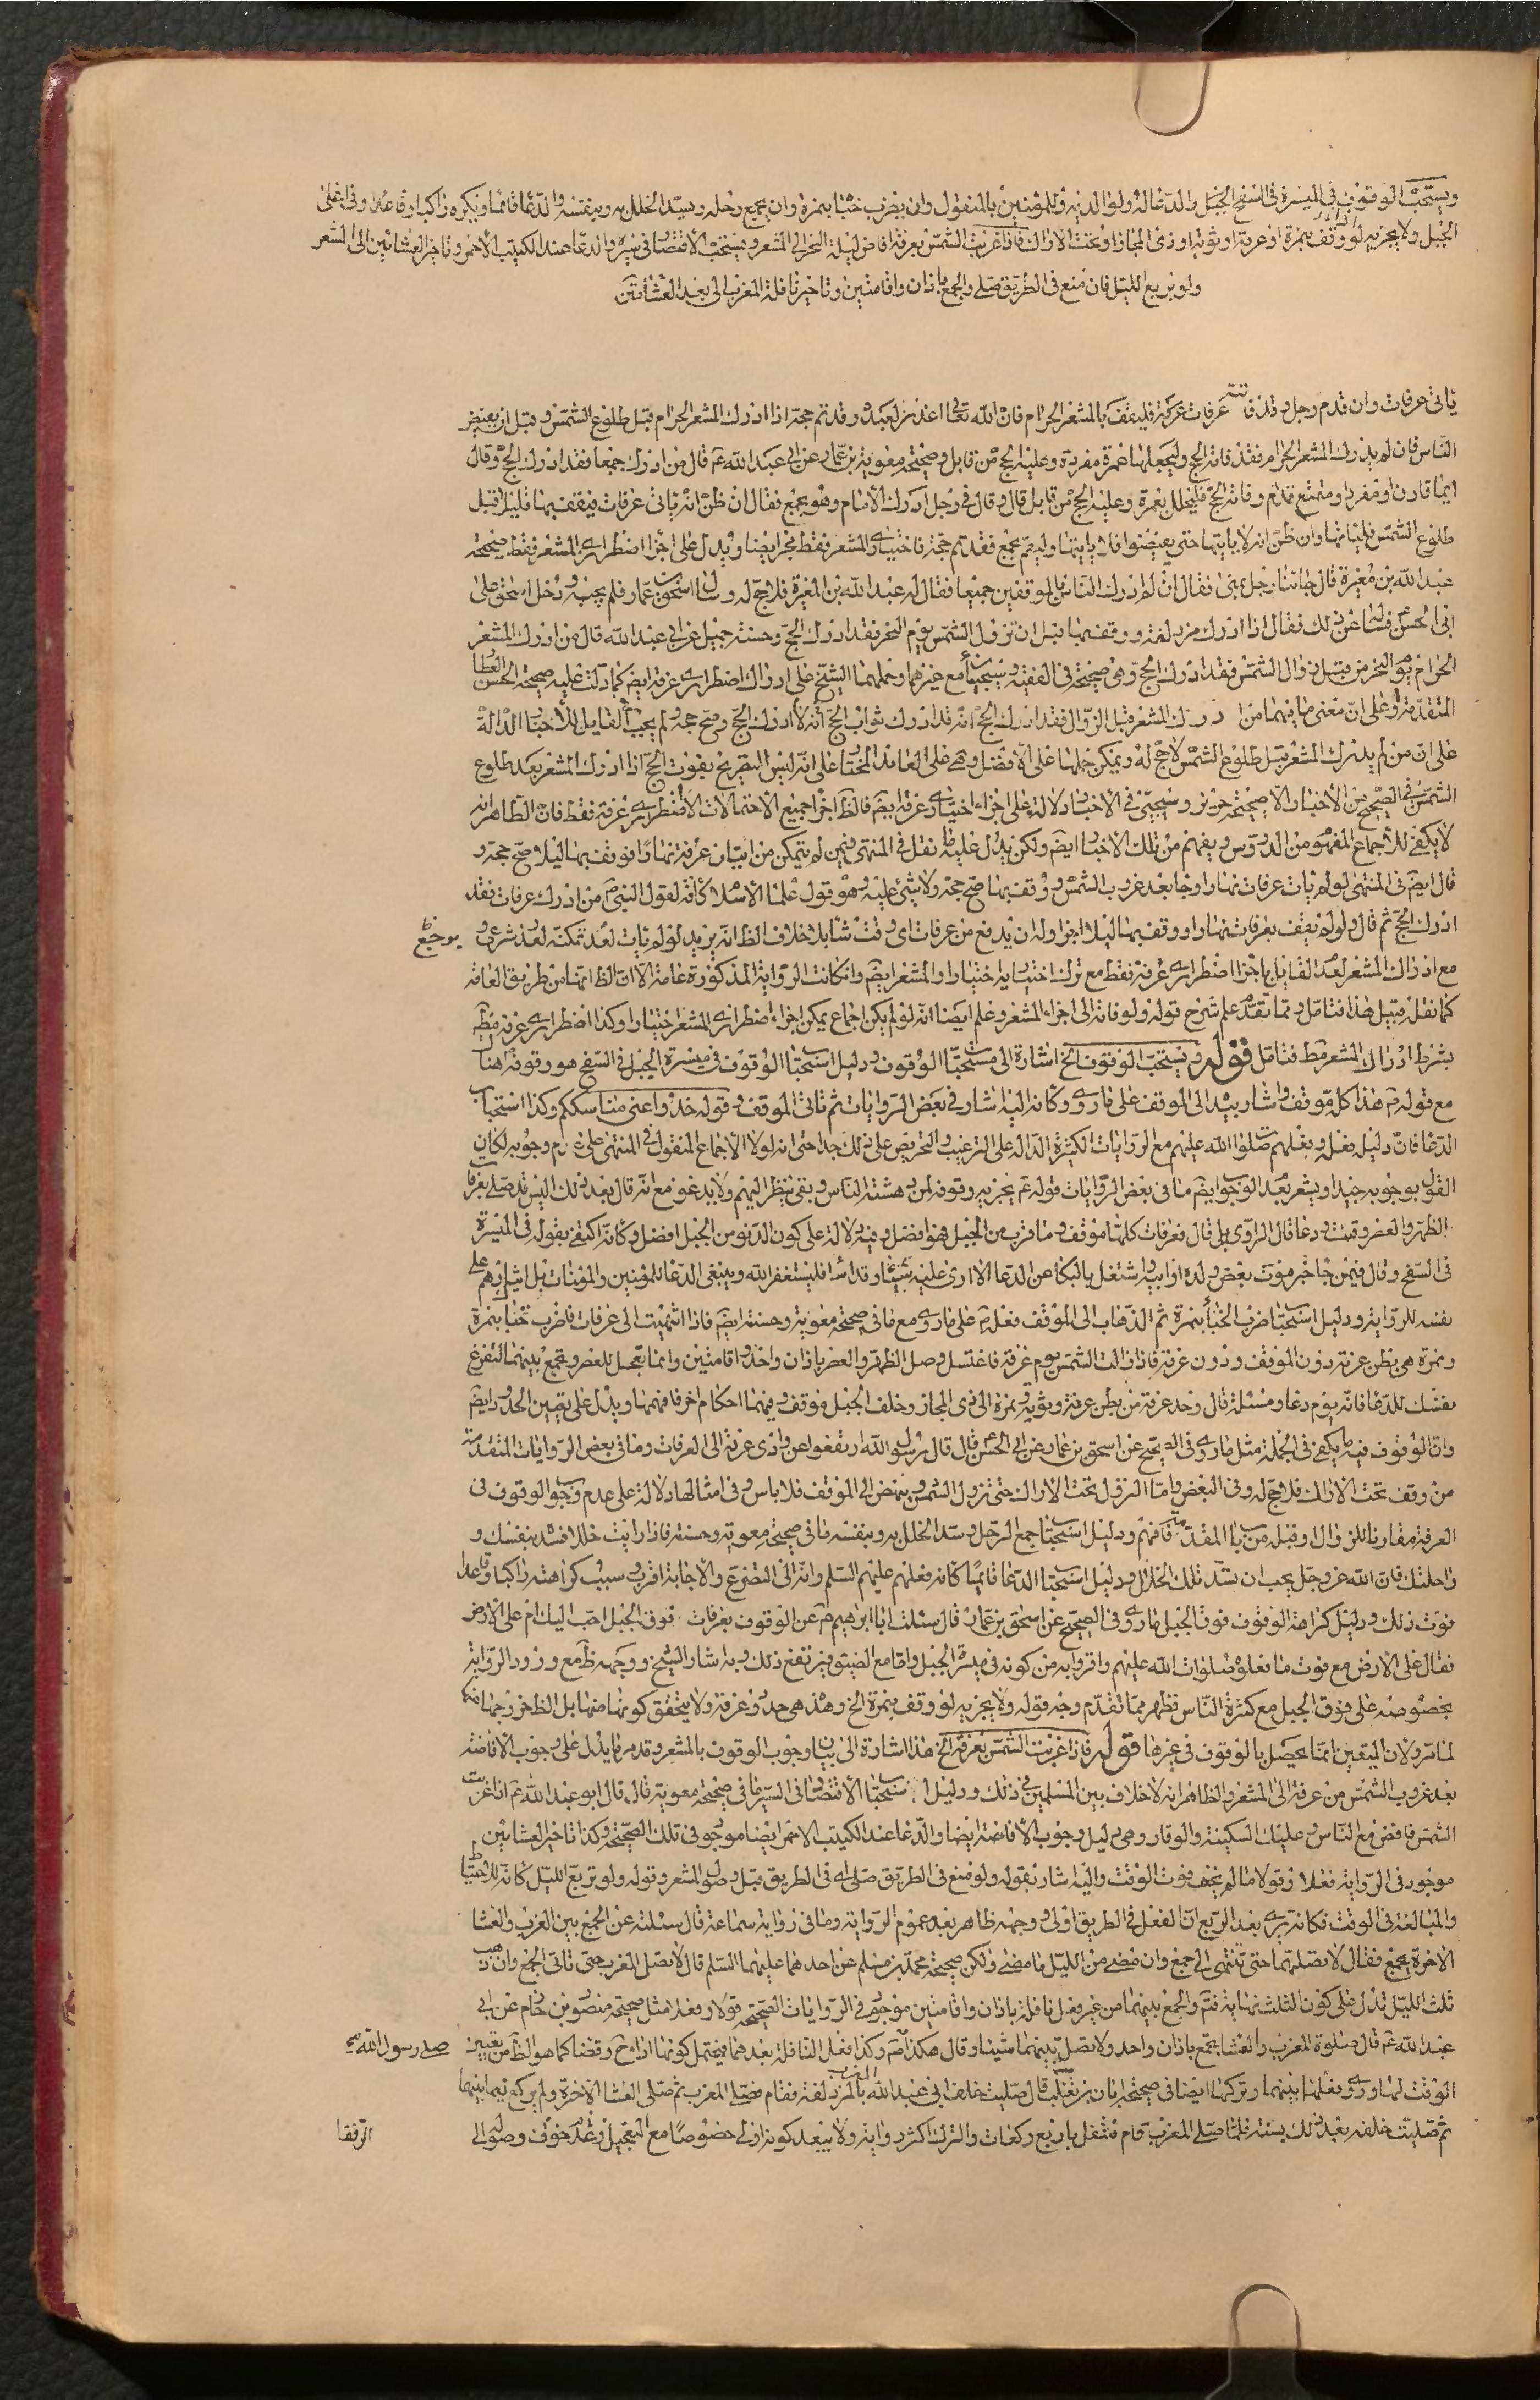 ويستحب الوقوف في الميسرة في السفح الجبل والدعا له ولوالديه وللمؤمنين بالمنقول وان يضرب خباه بنمرة وان يجمع رحله ويسد الخلل به وبنفسه والدعا قائما ويكره راكبا وقاعدا وفي اعلى
الجبل ولا يجزيه لو وقف بنمرة او عرنة او ثوية او ذي المجاز او تحت الاراك فاذا غربت الشمس بعرفة افاض ليلة النحر الى المشعر ويستحب الاقتصاد في سيره والدعا عند الكثيب الاحمر وتاخير العشائين الى المشعر
ولو تربع الليل فان منع في الطريق صلى والجمع باذان واقامتين وتاخير نافلة المغرب الى بعد العشاء
ياتي عرفات وان قدم رجل وقد فاتته عرفات فليقف بالمشعر الحرام فان الله تعالى اعذر لعبده وقد تم حجه اذا ادرك المشعر الحرام قبل طلوع الشمس وقبل ان يفيض
الناس فان لم يدرك المشعر الحرام فقد فاته الحج وليجعلها عمرة مفردة وعليه الحج من قابل وصحيحة معوية بن عمار عن ابي عبد الله ع قال من ادرك جمعا فقد ادرك الحج وقال
ايما قارن او مفرد او متمتع قدم وفاته الحج فليحلل بعمرة وعليه الحج من قابل قال وقال في رجل ادرك الامام وهو بجمع فقال ان ظن انه ياتي عرفات فيقف بها قليلا قبل
طلوع الشمس فلياتها وان ظن انه لا ياتيها حتى يفيضوا فلا ياتها وليقم بجمع فقد تم حجه فاختياري المشعر فقط مجز ايضا ويدل على اجزا اضطراري المشعر فقط صحيحة
عبد الله بن مغيرة قال جائنا رجل بمنى فقال اني لم ادرك الناس بالموقفين جميعا فقال له عبد الله بن المغيرة فلا حج له وسال اسحق بن عمار فلم يجبه ودخل اسحق على
ابي الحسن ع فساله عن ذلك فقال اذا ادرك مزدلفة ووقف بها قبل ان تزول الشمس يوم النحر فقد ادرك الحج وحسنة جميل عن ابي عبد الله قال من ادرك المشعر
الحرام يوم النحر من قبل زوال الشمس فقد ادرك الحج وهي صحيحة في الفقيه وسيجيء مع غيرهما وحملهما الشيخ على ادراك اضطراري عرفة ايضا كما دلت عليه صحيحة الحسن العطار
المتقدمة وعلى ان معنى ما فيهما من ادرك المشعر قبل الزوال فقد ادرك الحج انه قد ادرك ثواب الحج لا انه ادرك الحج وصح حجه ولم يجب القابل للاخبار الدالة
على ان من لم يدرك المشعر قبل طلوع الشمس لا حج له ويمكن حملها على الافضل وهي على العامد المختار على انه ليس التصريح بفوت الحج اذا ادرك المشعر بعد طلوع
الشمس في الصحيح من الاخبار الا صحيحة حريز وسيجيئ في الاخبار دلالة على اجزاء اختياري عرفة ايضا فالظ اجزا جميع الاحتمالات الا اضطراري عرفة فقط فان الظاهر انه
لا يكفي للاجماع المفهوم من الدروس ويفهم من تلك الاخبار ايضا ولكن يدل عليه ما نقل في المنتهى فيمن لم يتمكن من اتيان عرفة نهارا فوقف بها ليلا صح حجه و
قال ايضا في المنتهى لو لم يات عرفات نهارا وجا بعد غروب الشمس ووقف بها صح حجه ولا شيء عليه وهو قول علماء الاسلام كافة لقول النبي ص من ادرك عرفات فقد
ادرك الحج ثم قال ولو لم يقف بعرفات نهارا ووقف بها ليلا اجزاه وله ان يدفع من عرفات اي وقت شاء بلا خلاف الظ انه يريد لو لم يات لعدم تمكنه لعذر شرعي و
مع ادراك المشعر لعدم القائل باجزا اضطراري عرفة فقط مع ترك اختياريه اختيارا والمشعر ايضا وان كانت الرواية المذكورة عامة الا ان الظ انها من طريق العامة
كما نقل قبيل هذا فتامل ومما تقدم علم شرح قوله ولو فاته الى اجزاء المشعر وعلم ايضا انه لو لم يكن اجماع يمكن اجزاء اضطراري المشعر اختيارا وكذا اضطراري عرفة
بشرط ادراك المشعر فقط فتامل قوله ويستحب الوقوف الخ اشارة الى مستحبات الوقوف ودليل استحباب الوقوف في ميسرة الجبل في السفح هو وقوفه هنا
مع قوله ص هذا كله موقف واشار بيده الى الموقف على ما روي وكانه اليه اشار في بعض الروايات ثم تاتي الموقف وقوله خذوا عني مناسككم وكذا استحباب
الدعا فان دليله فعله وفعلهم صلوات الله عليهم مع الروايات الكثيرة الدالة على الترغيب والتحريض على ذلك جدا حتى انه لولا الاجماع المنقول في المنتهى على عدم وجوبه لكان
القول بوجوبه جيدا ويشعر بعدم الوجوب ايضا ما في بعض الروايات قوله ع يجزيه وقوفه لمن دهشته الناس وبقى ينظر اليهم ولا يدعو مع انه قال بعد ذلك اليس قد صلى بعرفات
الظهر والعصر وقنت ودعا قال الراوي بلى قال فعرفات كلها موقف وما قرب من الجبل فهو افضل وفيه دلالة على كون الدنو من الجبل افضل وكانه اكتفى بقوله في الميسرة
في السفح وقال فيمن جا خبر موت بعض ولده او ابيه واشتغل بالبكا عن الدعا لا ارى عليه شيئا وقد اساء فليستغفر الله وينبغي الدعا للمؤمنين والمؤمنات بل ايثارهم على
نفسه للرواية ودليل استحباب ضرب الخباء بنمرة ثم الذهاب الى الموقف فعله ص على ما روي مع ما في صحيحة معوية وحسنة ايضا فاذا انتهيت الى عرفات فاضرب خباك بنمرة
ونمرة هي بطن عرنة دون الموقف ودون عرفة فاذا زالت الشمس يوم عرفة فاغتسل وصل الظهر والعصر باذان واحد واقامتين وانما تعجل العصر وتجمع بينهما لتفرغ
نفسك للدعا فانه يوم دعا ومسئلة قال وحد عرفة من بطن عرنة وثوية ونمرة الى ذي المجاز وخلف الجبل موقف وفيهما احكام اخر فافهمها ويدل على تعيين الحدود ايضا
وان الوقوف فيه ما يكفي في الجملة مثل ما روي في الصحيح عن اسحق بن عمار عن ابي الحسن ع قال قال رسول الله ارتفعوا عن وادي عرنة الى العرفات وما في بعض الروايات المتقدمة
من وقف تحت الاراك فلا حج له وفي البعض واما النزول تحت الاراك حتى تزول الشمس وينهض الى الموقف فلا باس وفي امثالها دلالة على عدم وجوب الوقوف في
العرفة مقارنا للزوال او قبله من باب المقدمة فافهم ودليل استحباب جمع الرحل وسد الخلل به وبنفسه ما في صحيحة معوية وحسنته فاذا رايت خللا فسده بنفسك و
راحلتك فان الله عز وجل يحب ان تسد تلك الخلال ودليل استحباب الدعا قائما كانه فعلهم عليهم السلم وانه الى التضرع والاجابة اقرب وسبب كراهته راكبا وقاعدا
فوت ذلك ودليل كراهة الوقوف فوق الجبل ما روي في الصحيح عن اسحق بن عمار قال سئلت ابا ابراهيم ع عن الوقوف بعرفات فوق الجبل احب اليك ام على الارض
فقال على الارض مع فوت ما فعلوه صلوات الله عليهم واقوابه من كونه في ميسرة الجبل واما مع الضيق فيرتفع ذلك وبه اشار الشيخ ووجهه ظ مع ورود الرواية
بخصوصه على فوق الجبل مع كثرة الناس فظهر مما تقدم وجه قوله ولا يجزيه لو وقف بنمرة الخ وهذه هي حدود عرفة ولا يتحقق كونها منها بل الظ خروجها
لما مر ولان اليقين انما يحصل بالوقوف في غيرها قوله فاذا غربت الشمس بعرفة الخ هذا اشارة الى بيان وجوب الوقوف بالمشعر وقد مر ما يدل على وجوب الافاضة
بعد غروب الشمس من عرفة الى المشعر والظاهر انه لا خلاف بين المسلمين في ذلك ودليل استحباب الاقتصاد في السير ما في صحيحة معوية قال قال ابو عبد الله ع اذا غربت
الشمس فافض مع الناس وعليك السكينة والوقار وهي دليل وجوب الافاضة ايضا والدعا عند الكثيب الاحمر ايضا موجود في تلك الصحيحة وكذا تاخير العشائين
موجود في الرواية فعلا وقولا ما لم يخف فوت الوقت واليه اشار بقوله ولو منع في الطريق صلى اي في الطريق قبل وصول المشعر وقوله ولو تربع الليل كانه للاحتياط
والمبالغة في الوقت فكانه يرى بعد الربع ان الفعل في الطريق اولى ووجهه ظاهر بعد عموم الرواية وما في رواية سماعة قال سئلته عن الجمع بين المغرب والعشا
الاخرة بجمع فقال لا تصلهما حتى تنتهي الى جمع وان مضى من الليل ما مضى ولكن صحيحة محمد بن مسلم عن احدهما عليهما السلم قال لا تصل المغرب حتى تاتي الجمع وان ذهب
ثلث الليل تدل على كون الثلث نهاية فتم والجمع بينهما من غير فعل نافلة باذان واقامتين موجود في الروايات الصحيحة قولا وفعلا مثل صحيحة منصور بن حازم عن ابي
عبد الله ع قال صلوة المغرب والعشا بجمع باذان واحد ولا تصل بينهما شيئا وقال هكذا وكذا فعل النافلة بعدهما فيحتمل كونها اداء وقضا كما هو الظ من تعيين صلى رسول الله ص
الوقت لها وروي فعلها بينهما وتركها ايضا في صحيحة ابان بن تغلب قال صليت خلف ابي عبد الله المغرب بالمزدلفة فقام فصلى المغرب ثم صلى العشا الاخرة ولم يركع فيما بينهما
ثم صليت خلفه بعد ذلك بسنة فلما صلى المغرب قام فتنفل باربع ركعات والترك اكثر رواية ولا يبعد كونه اولى خصوصا مع التعجيل وعدم خوف وصول الى
الرفقا